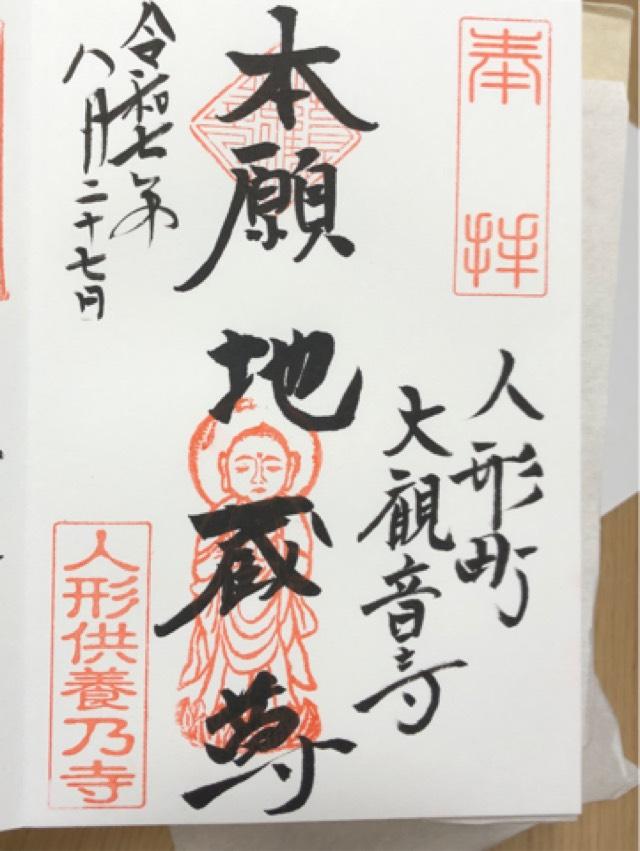 奉拝
人形町
大観音寺
本願
地蔵尊
令和七年
八月二十七日
人形供養乃寺